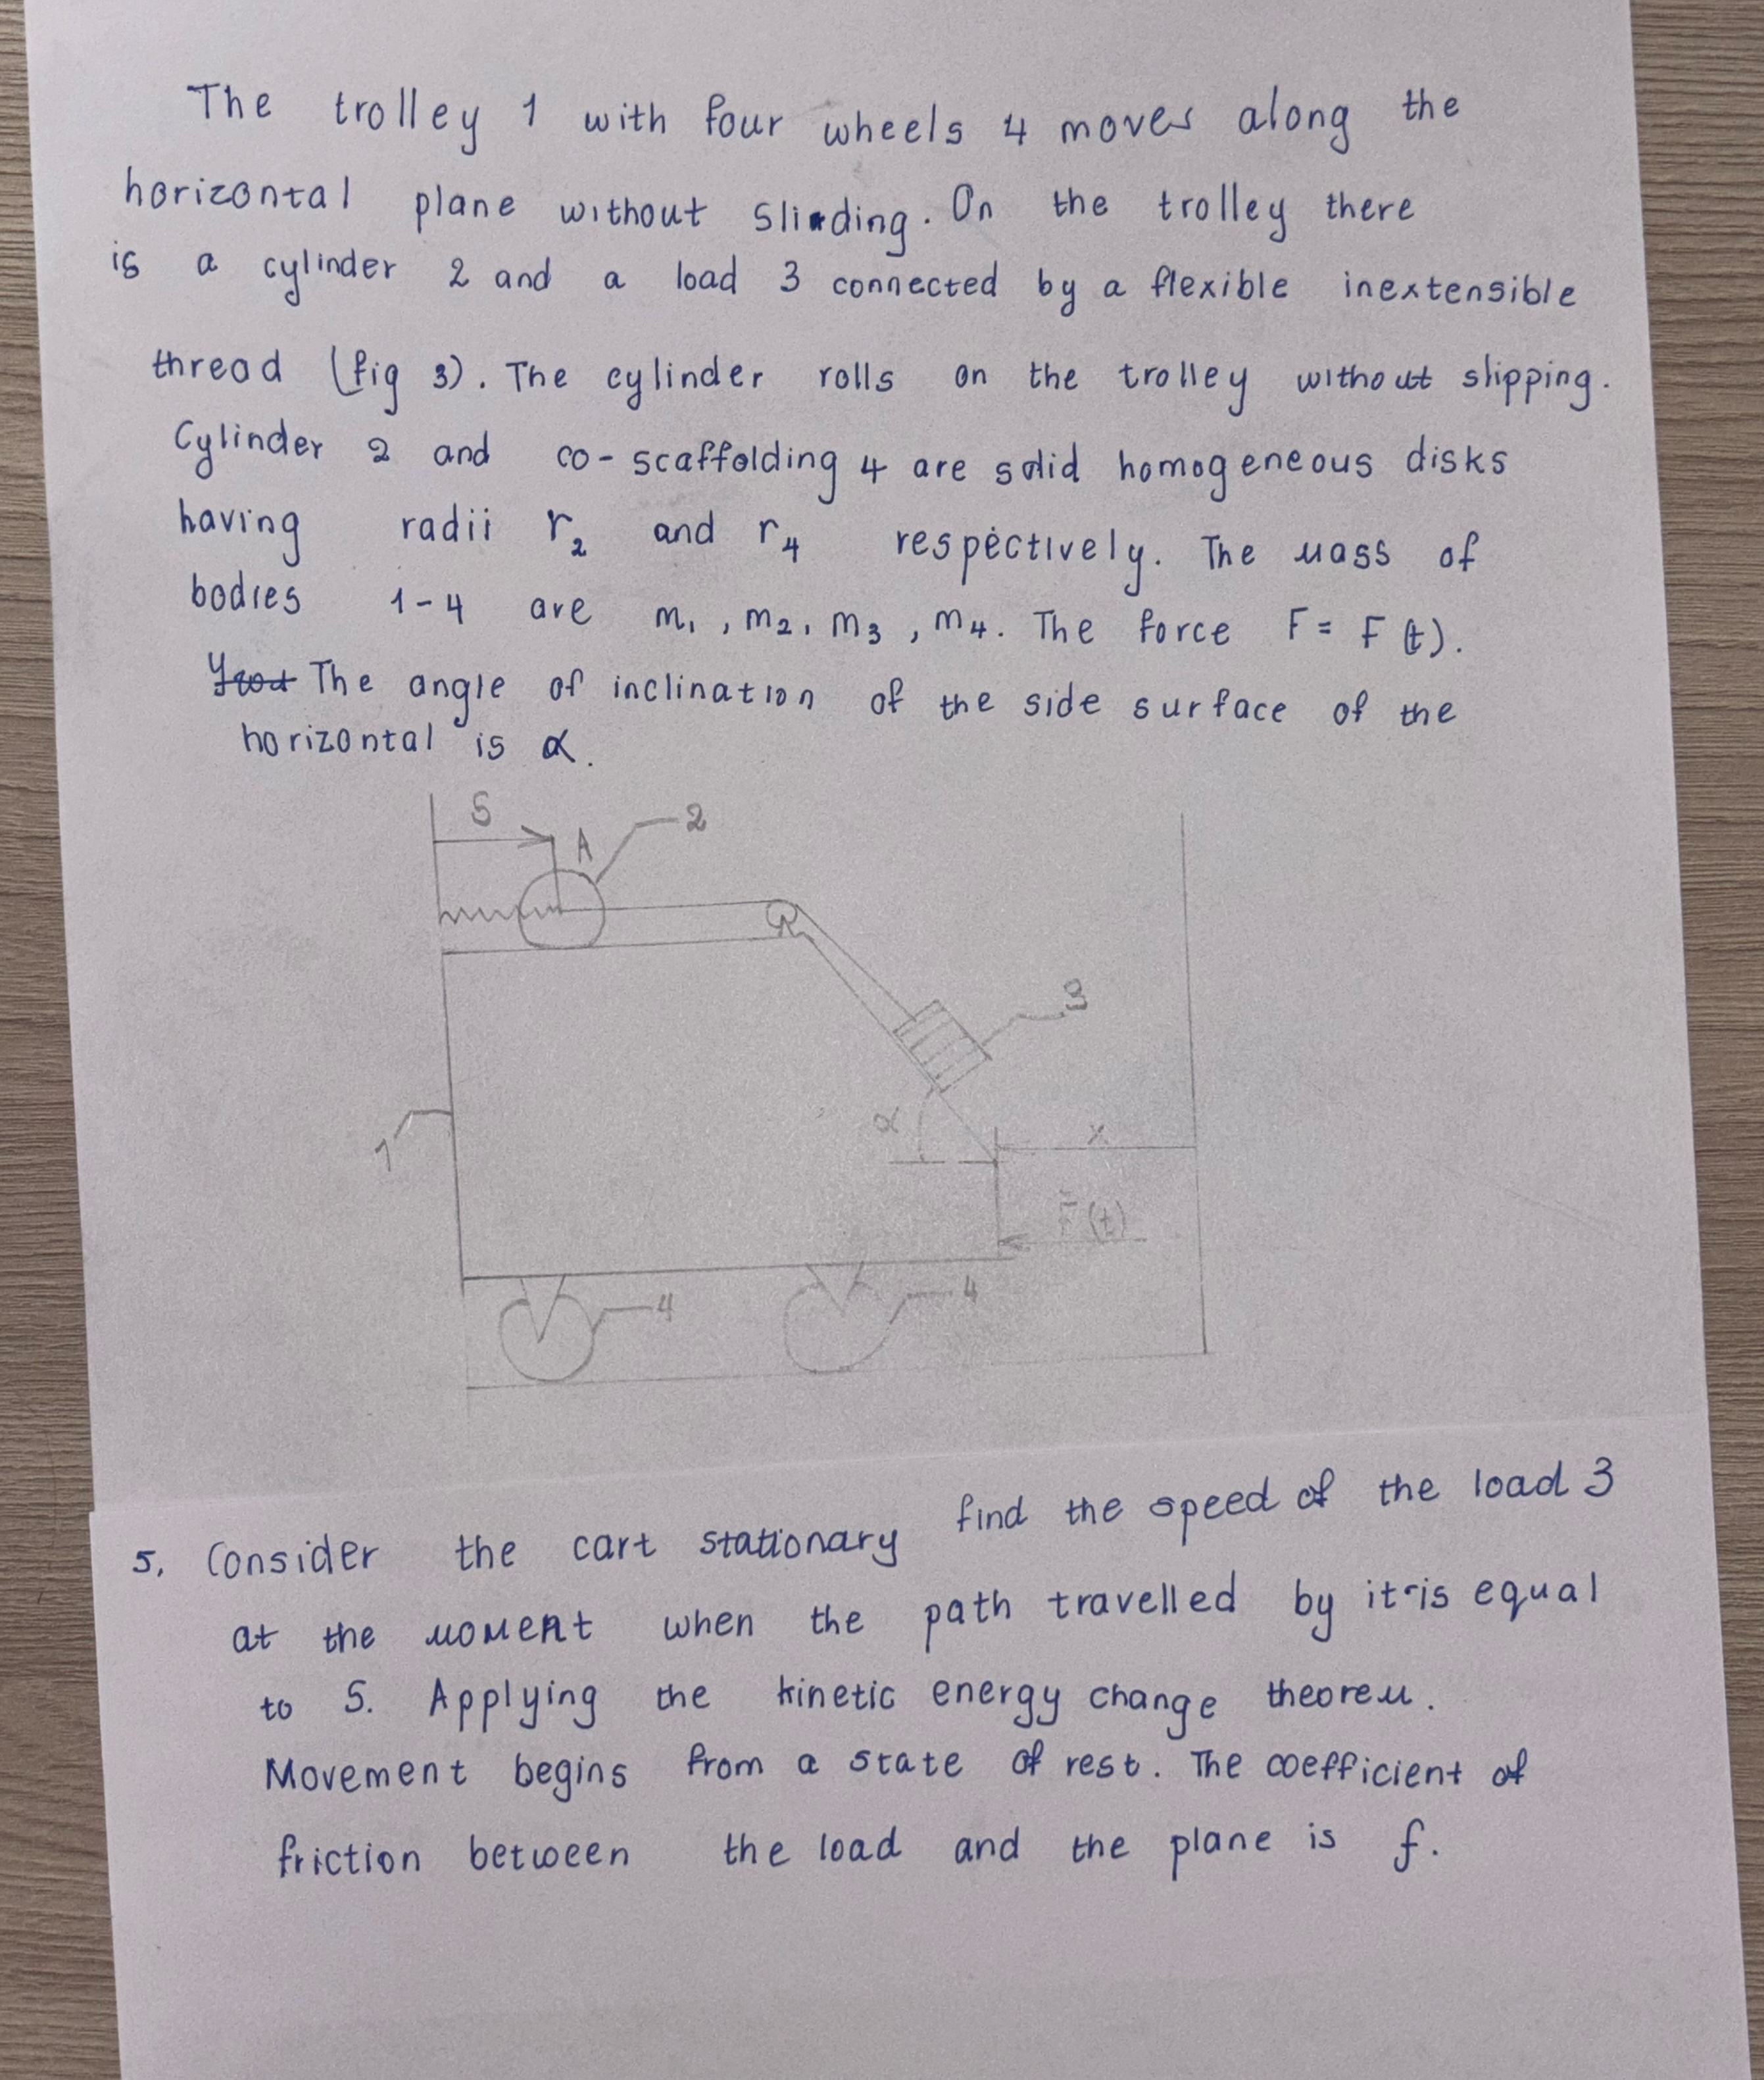 The trolley 1 with four wheels 4 moves along the
horizontal plane without sliding. On the trolley there
is a cylinder 2 and a load 3 connected by a flexible inextensible
thread (fig 3). The cylinder rolls on the trolley without slipping.
Cylinder 2 and co-scaffolding 4 are solid homogeneous disks
having radii r₂ and r₄ respectively. The mass of
bodies 1-4 are m₁, m₂, m₃, m₄. The force F = F(t).
The angle of inclination of the side surface of the
horizontal is α.
S
A
2
3
α
x
1
F(t)
4
4
5. Consider the cart stationary find the speed of the load 3
at the moment when the path travelled by it is equal
to S. Applying the kinetic energy change theorem.
Movement begins from a state of rest. The coefficient of
friction between the load and the plane is f.